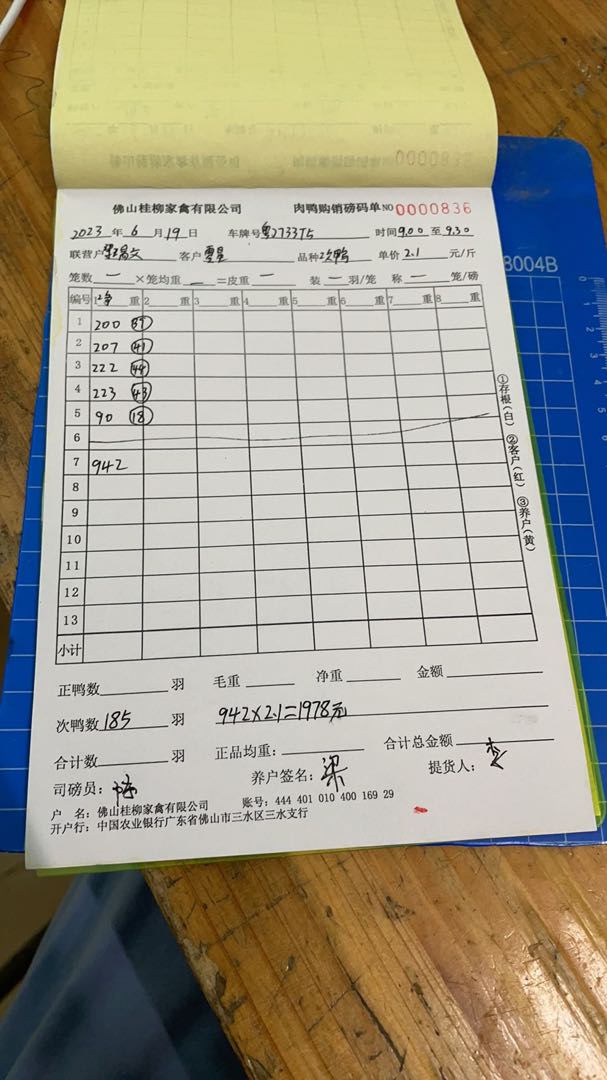 佛山桂柳家禽有限公司 肉鸭购销磅码单 NO 0000836
2023 年 6 月 19 日 车牌号 粤Z733T5 时间 9.00 至 9.30
联营户 客户 零星 品种 次鸭 单价 2.1 元/斤
笼数 一 ×笼均重 一 =皮重 一 装 一 羽/笼 称 一 笼/磅
编号 1 净 重 2 重 3 重 4 重 5 重 6 重 7 重 8 重
1 200 37
2 207 41
3 222 44
4 223 43
5 90 18
6
7 942
8
9
10
11
12
13
小计
①存根(白) ②客户(红) ③养户(黄)
正鸭数 羽 毛重 净重 金额
次鸭数 185 羽 942×2.1=1978元
合计数 羽 正品均重: 合计总金额
司磅员: 养户签名: 梁 提货人:
户 名: 佛山桂柳家禽有限公司 账号: 444 401 010 400 169 29
开户行: 中国农业银行广东省佛山市三水区三水支行
8004B